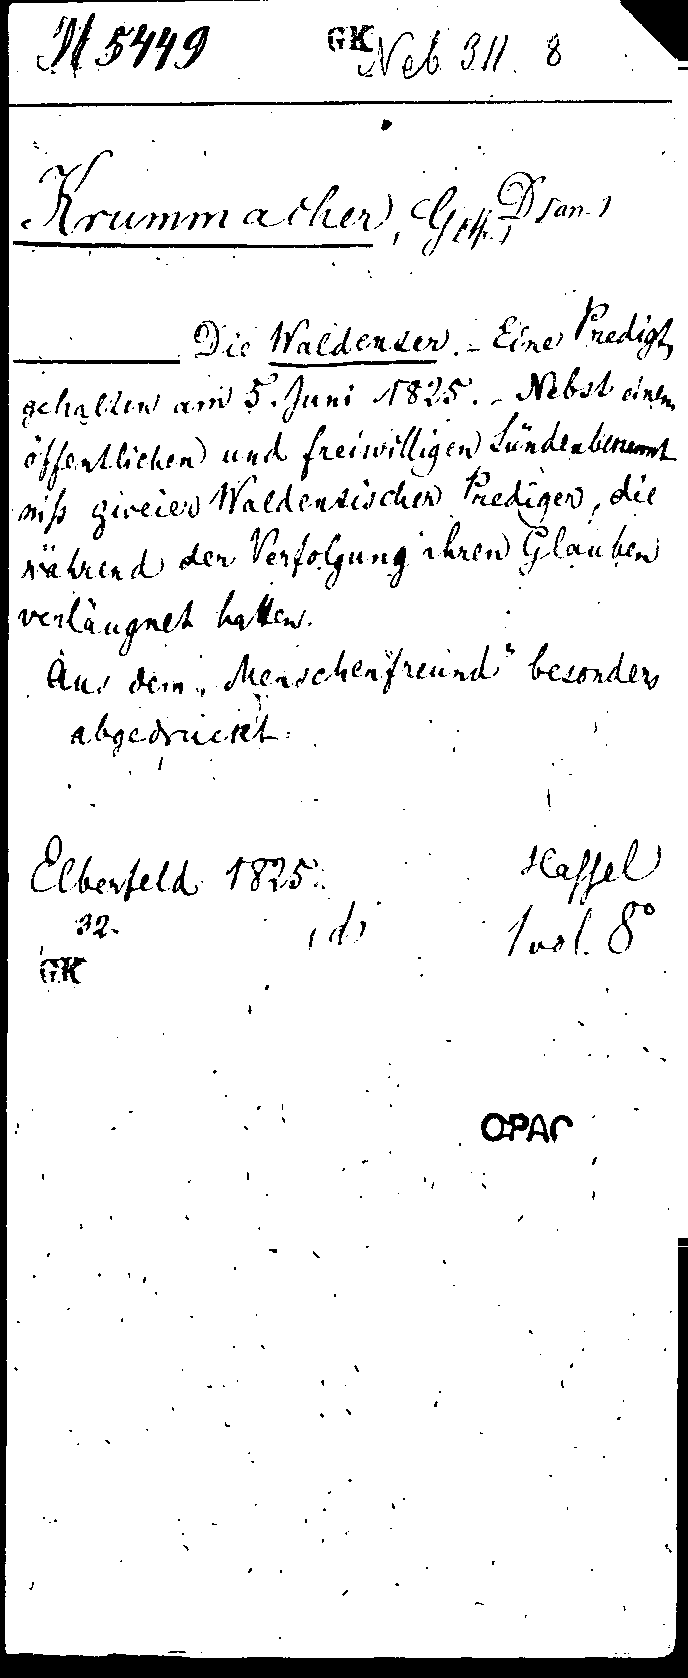 N 5449 GK Neb 311. 8
Krummacher, Gottfr. D
Die Waldenser. - Eine Predigt,
gehalten am 5. Juni 1825. - Nebst einem
öffentlichen und freiwilligen Sündenbekennt
niß zweier Waldensischer Prediger, die
während der Verfolgung ihren Glauben
verläugnet hatten.
Aus dem „Menschenfreund" besonders
abgedruckt.
Elberfeld 1825. Hassel
32. (d) 1 vol. 8°
GK
OPAC